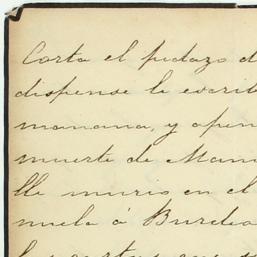 Corto el pedazo d
dispense le escrib
manana, y apen
muerte de Mam
lle murio en el
nuela á Burdeo